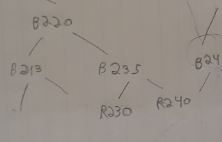 B220
B213 B235 B24
R230 R240